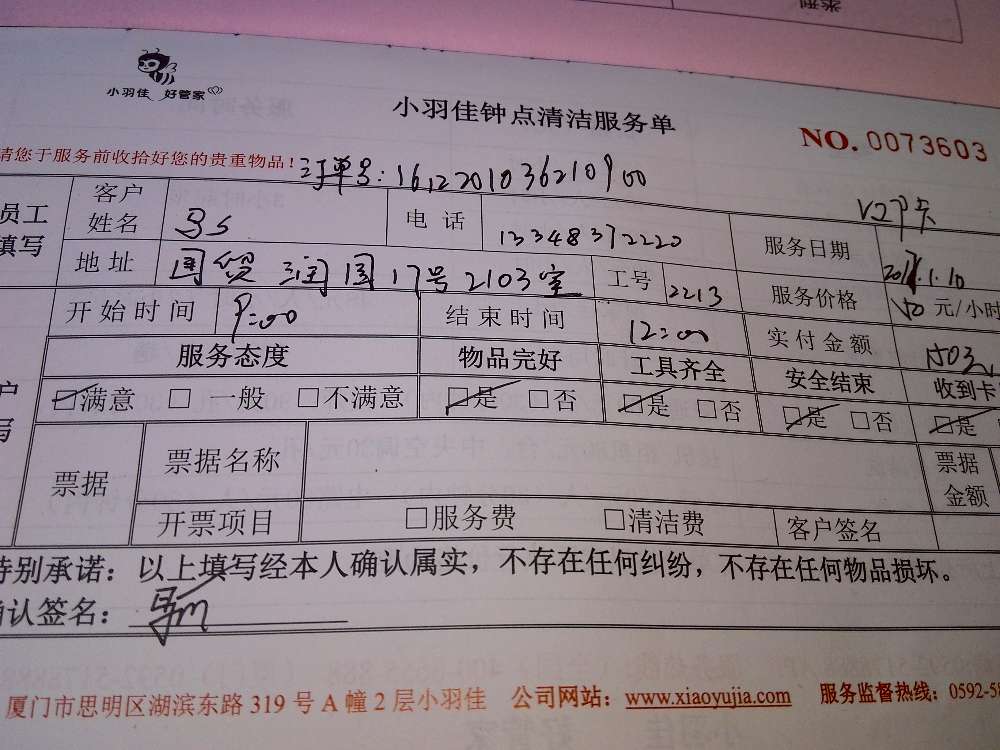 类型
小羽佳 好管家
小羽佳钟点清洁服务单
NO. 0073603
请您于服务前收拾好您的贵重物品！ 订单号:1612201036210900
员工填写 客户姓名 马S 电话 13348372220 服务日期 1.10
地址 国贸润园17号2103室 工号 2213 服务价格 50元/小时
开始时间 9:00 结束时间 12:00 实付金额
服务态度 物品完好 工具齐全 安全结束 收到卡
☑满意 □一般 □不满意 ☑是 □否 ☑是 □否 ☑是 □否 ☑是
票据 票据名称 票据金额
开票项目 □服务费 □清洁费 客户签名
特别承诺：以上填写经本人确认属实，不存在任何纠纷，不存在任何物品损坏。
确认签名：
厦门市思明区湖滨东路 319 号 A 幢 2 层小羽佳 公司网站：www.xiaoyujia.com 服务监督热线：0592-5